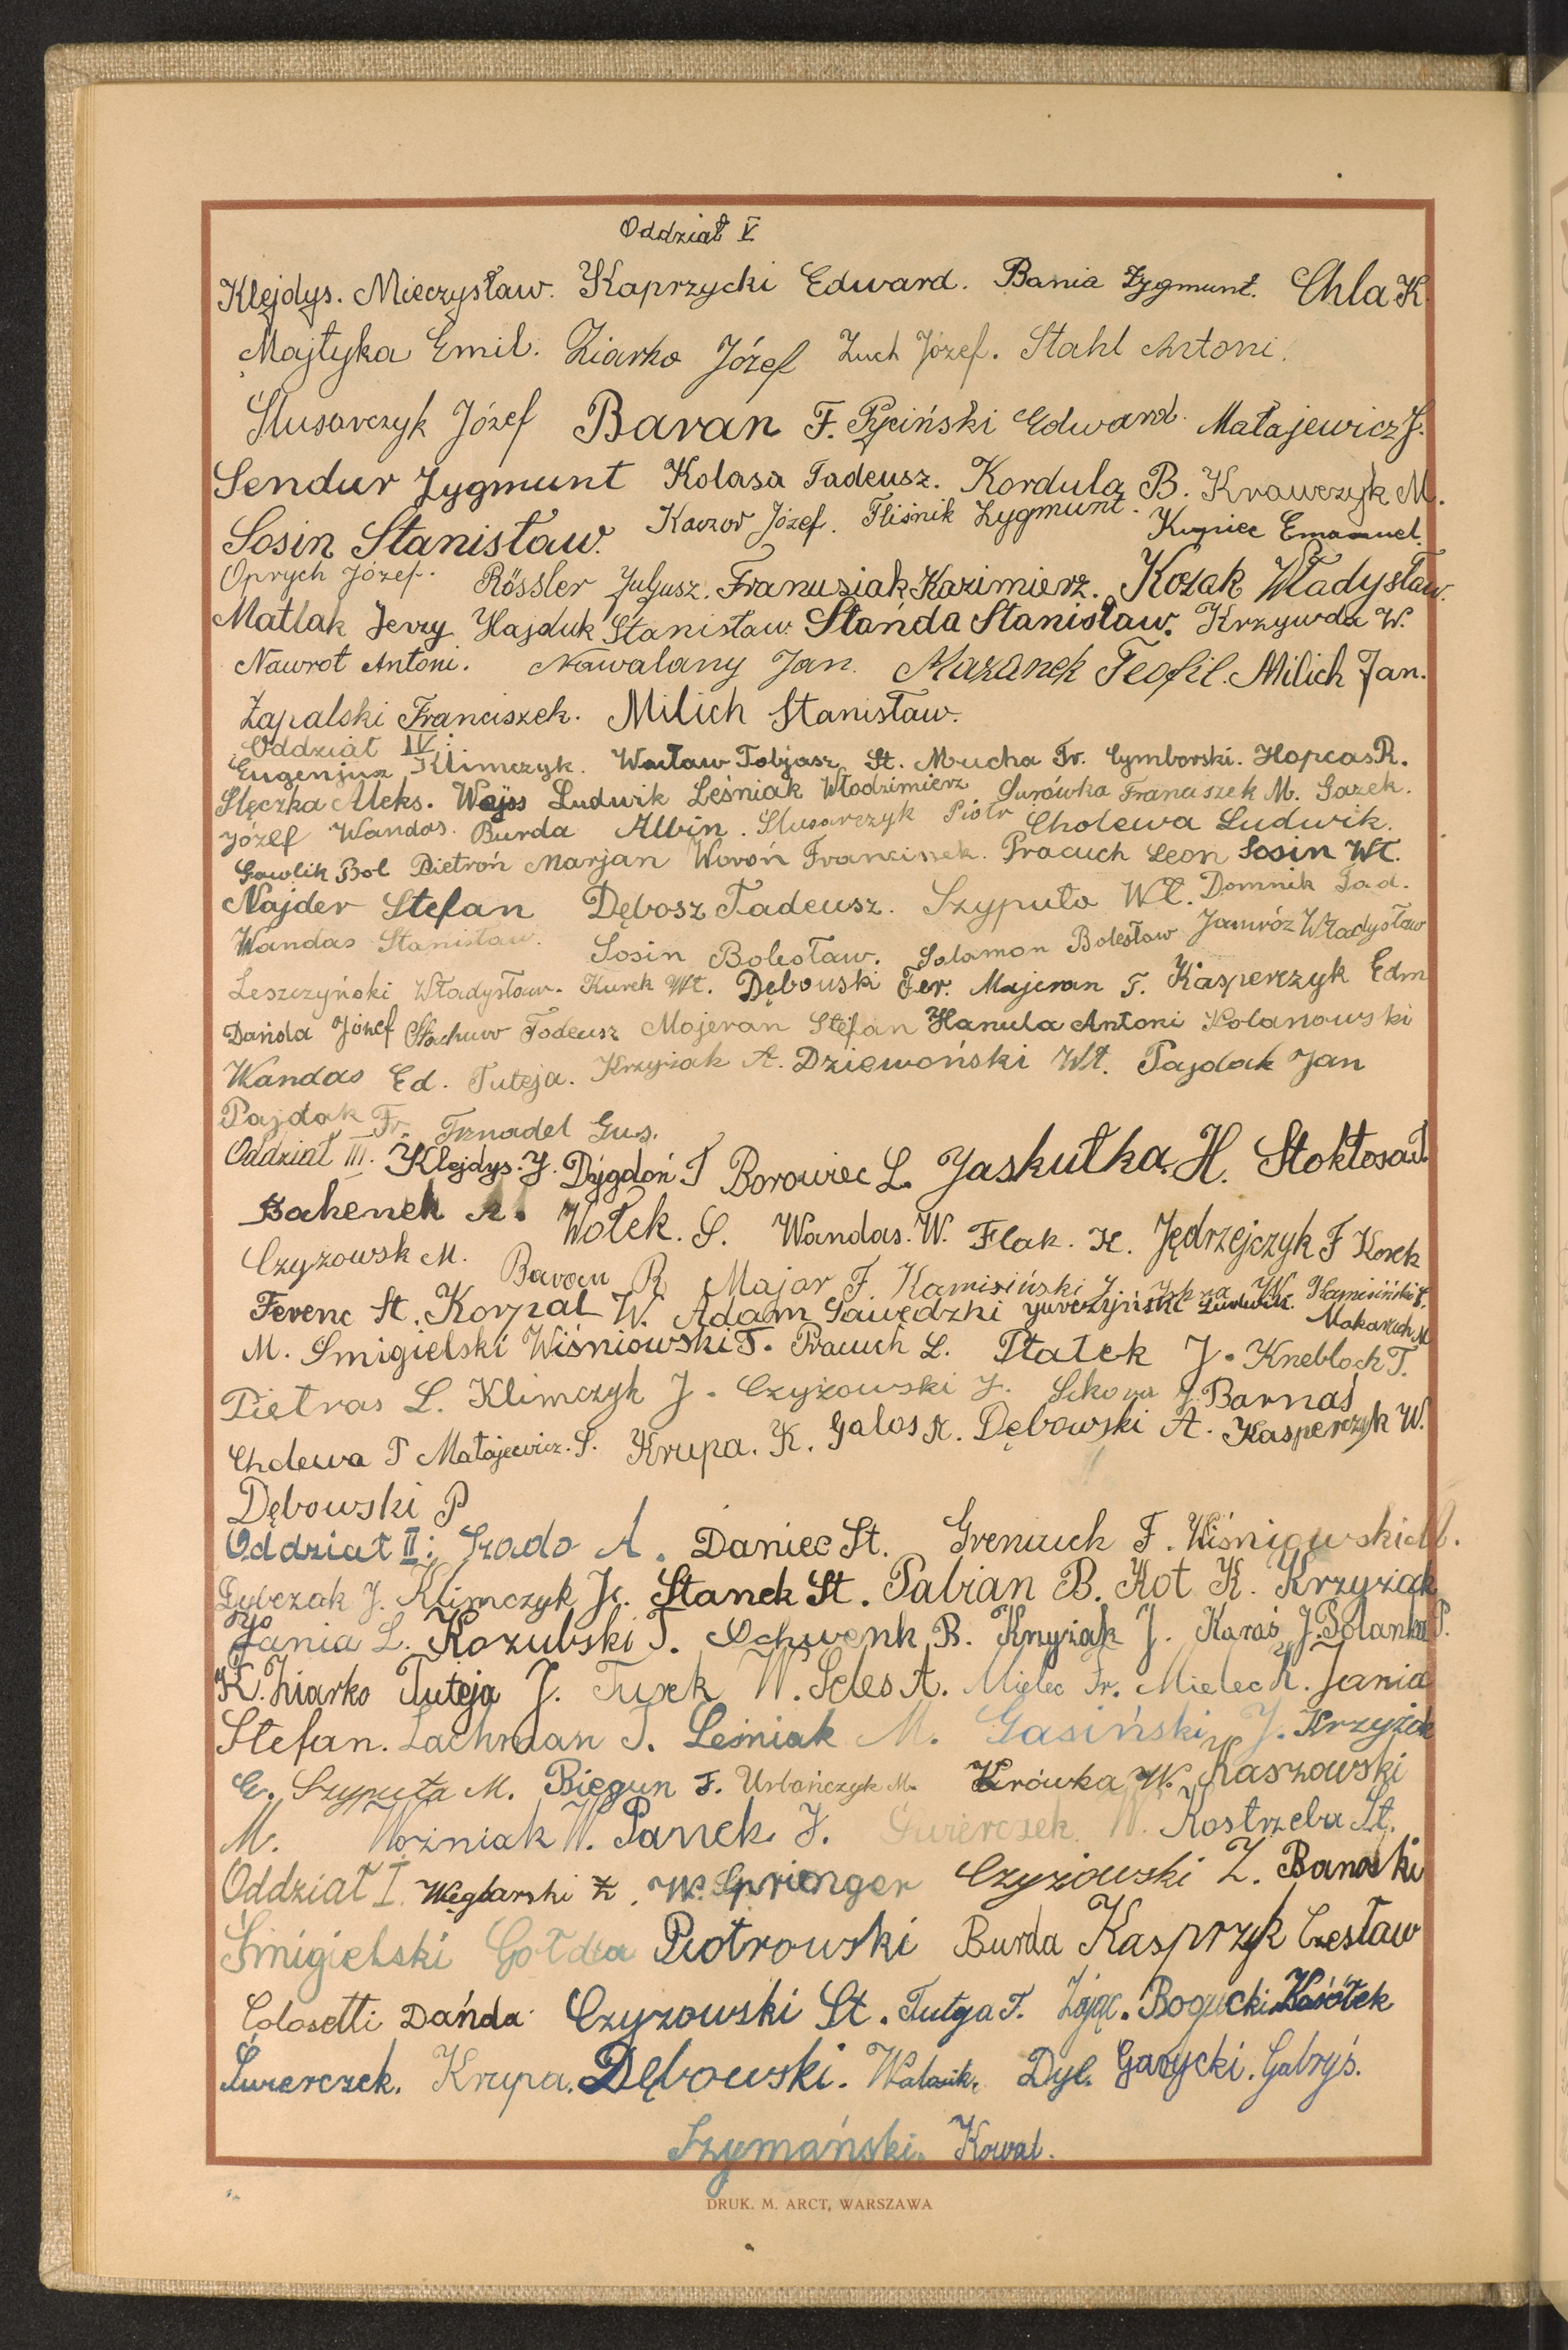 Oddział V
Klejdys. Mieczysław. Kaprzycki Edward. Bania Zygmunt. Chla K.
Majtyka Emil. Ziarko Józef Zuch Józef. Stahl Antoni.
Slusarczyk Józef Baran F. Pyciński Edward. Małajewicz J.
Sendur Zygmunt Kolasa Tadeusz. Kordula B. Krawczyk M.
Sosin Stanisław. Kaczor Józef. Fliśnik Zygmunt. Kupiec Emanuel.
Oprych Józef. Rössler Juljusz. Franusiak Kazimierz. Kozak Władysław.
Matlak Jerzy Hajduk Stanisław. Stańda Stanisław. Krzywda W.
Nawrot Antoni. Nawalany Jan. Mazanek Teofil. Milich Jan.
Zapalski Franciszek. Milich Stanisław.
Oddział IV:
Eugenjusz Klimczyk. Wacław Tobjasz St. Mucha Fr. Cymborski. Hopcas R.
Stęczka Aleks. Wajss Ludwik Leśniak Włodzimierz Surówka Franciszek M. Gazek.
Józef Wandas. Burda Albin. Slusarczyk Piotr Cholewa Ludwik.
Gawlik Bol Pietroń Marjan Woroń Franciszek. Pracuch Leon Sosin Wł.
Najder Stefan Dębosz Tadeusz. Szypuło Wł. Domnik Tad.
Wandas Stanisław. Sosin Bolesław. Salamon Bolesław Jamróz Władysław
Leszczyński Władysław. Kurek Wł. Dębowski Fer. Majeran F. Kasperczyk Edm
Dańda Józef Stachuw Tadeusz Majeran Stefan Hanula Antoni Kolanowski
Wandas Ed. Tuteja. Krzyżak A. Dziewoński Wł. Pajdak Jan
Pajdak Fr. Trznadel Gus.
Oddział III. Klejdys. J. Dygdoń T Borowiec L. Jaskułka. H. Stokłosa J.
Bahenek A. Wołek. S. Wandas. W. Flak. K. Jędrzejczyk F Korek
Czyżowsk M. Baran R Major F. Kamisiński J. W. Kamisiński
Ferenc St. Korpal W. Adam Gawędzki Jurczyński Ludwik. Makaruch M
M. Smigielski Wiśniowski T. Pracuch L. Płatek J. Knebloch T.
Pietras L. Klimczyk J. Czyżowski J. Sikora J. Barnaś
Cholewa P Małajewicz. S. Krupa. K. Galos K. Dębowski A. Kasperczyk W.
Dębowski P
Oddział II: Szado A. Daniec St. Greniuch F. Wiśniowski M.
Rybczak J. Klimczyk K. Stanek St. Pabian B. Kot K. Krzyżak
Jo Jania L. Kozubski T. Schwenk B. Knyżak J. Karaś J. Polanka P.
K. Ziarko Tuteja J. Turek W. Seles A. Mielec Fr. Mielec K. Jania
Stefan. Lachman T. Leśniak M. Gasiński J. Krzyżak
E. Szypuła M. Biegun F. Urbańczyk M. Krówka W. Kaszowski
M. Woźniak W. Panek J. Świerczek W. Kostrzeba St.
Oddział I. Węglarski Z. W. Sprienger Czyżowski Z. Banaski
Śmigielski Gołda Piotrowski Burda Kasprzyk Czesław
Colosetti Dańda Czyzowski St. Tuteja T. Zając. Bogucki Kosółek
Świerczek. Krupa. Dębowski. Walasik. Dyl. Garycki. Gabryś.
Szymański. Kowal.
DRUK. M. ARCT, WARSZAWA